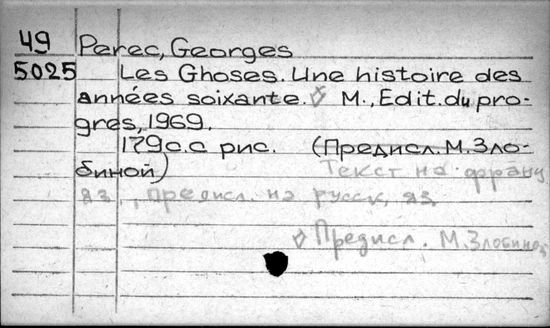 49 Perec, Georges
5025 Les Ghoses. Une histoire des
années soixante. M., Edit. du pro-
grès, 1969.
179с.с рис. (Предисл. М. Зло-
биной)
Текст на франц
яз., предисл. на русск, яз.
Предисл. М. Злобиной